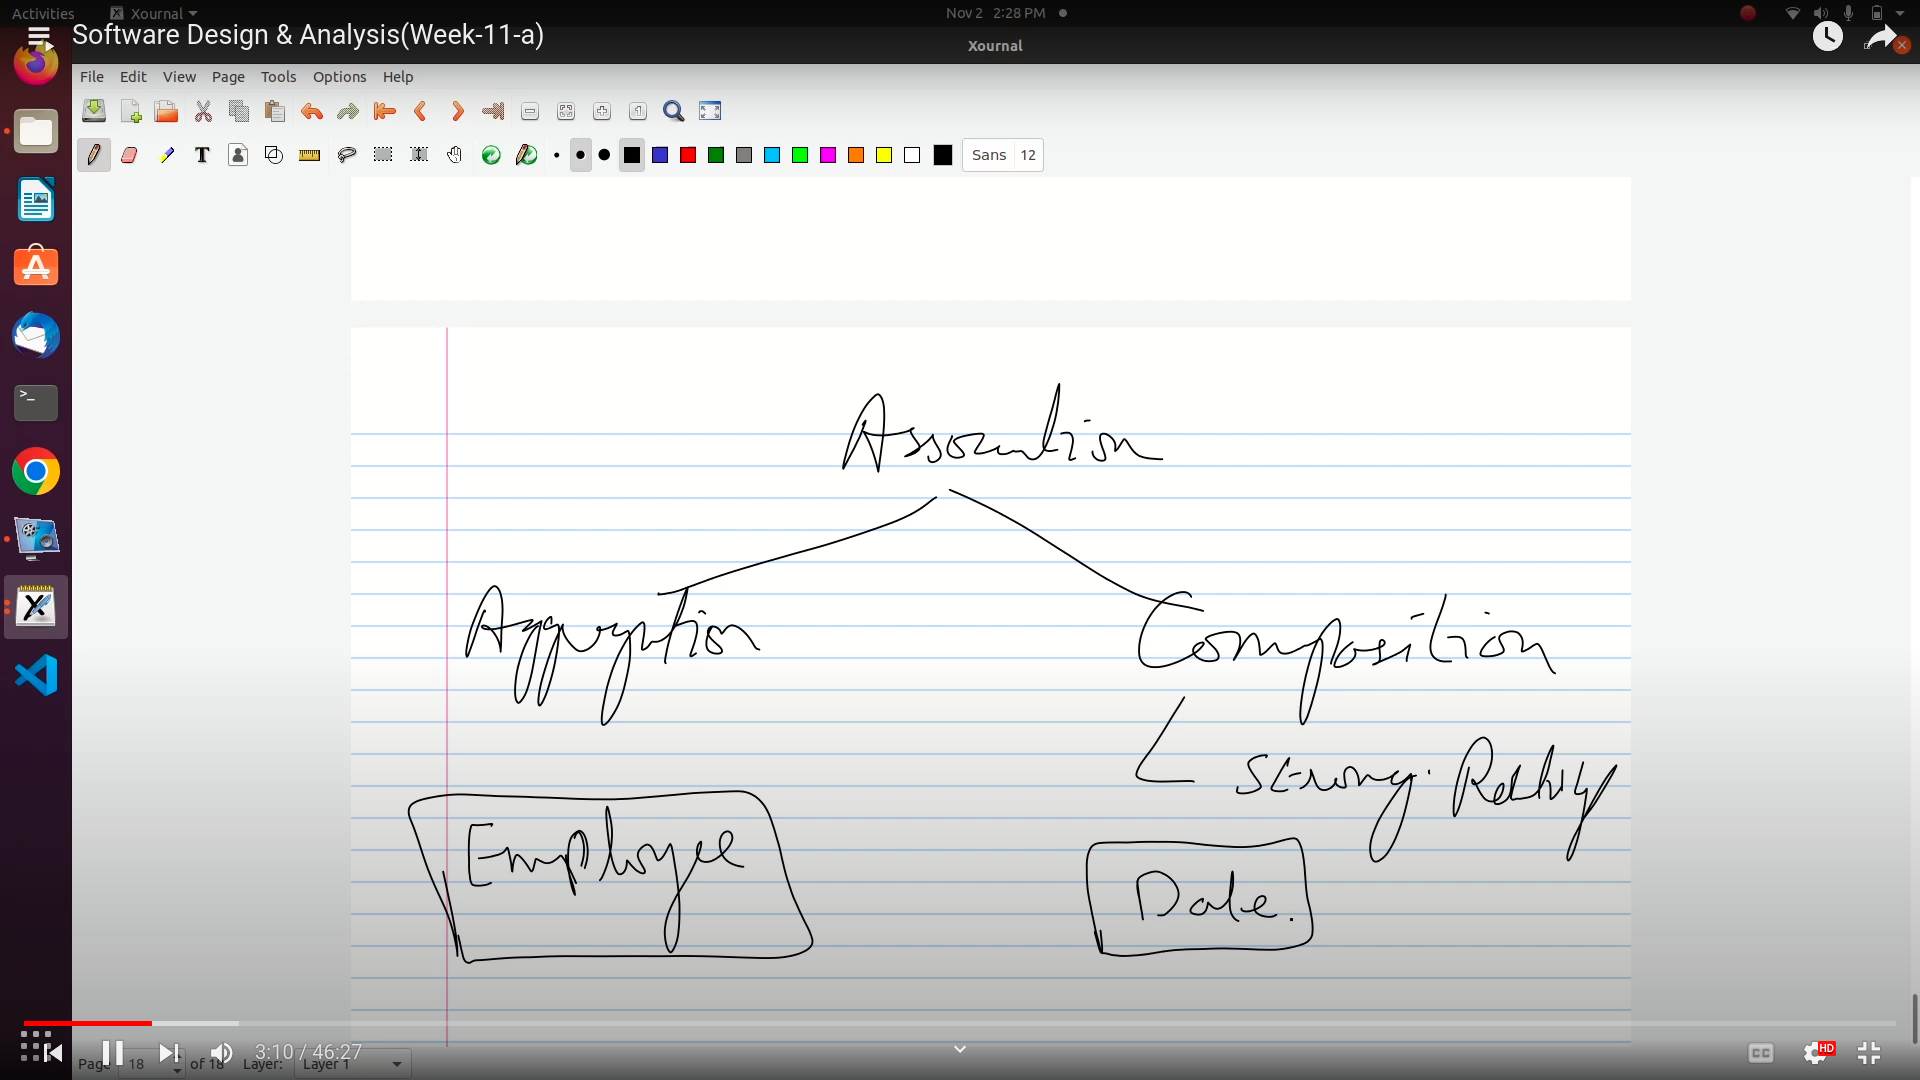 Activities Xournal Nov 2 2:28 PM
Software Design & Analysis(Week-11-a)
Xournal
File Edit View Page Tools Options Help
Sans 12
Association
Aggregation Composition
Strong
Employee
Date.
3:10 / 46:27
CC HD
Page 18 of 18 Layer: Layer 1